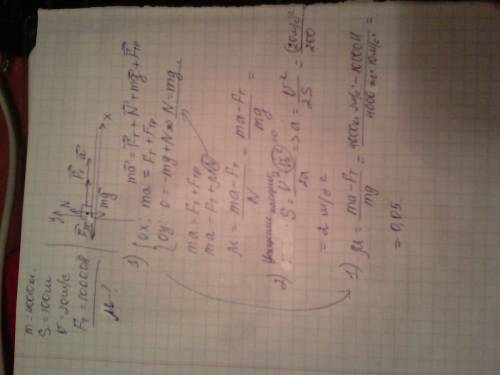 m = 4000 кг.
S = 100 м
V = 20 м/с
Fт = 10000 Н
μ - ?
y N Fтр Fт a mg x
1) ma = Fт + N + mg + Fтр
OX: ma = Fт + Fтр
OY: 0 = -mg + N ⇒ N = mg
ma = Fт + Fтр
ma = Fт + μN
μ = (ma - Fт)/N = (ma - Fт)/mg =
2)
S = V²/2a ⇒ a = V²/2S = (20 м/с)²/200
= 2 м/с²
1) μ = (ma - Fт)/mg = (4000 кг · 2 м/с² - 10000 Н)/(4000 кг · 10 м/с²) =
= 0,05.